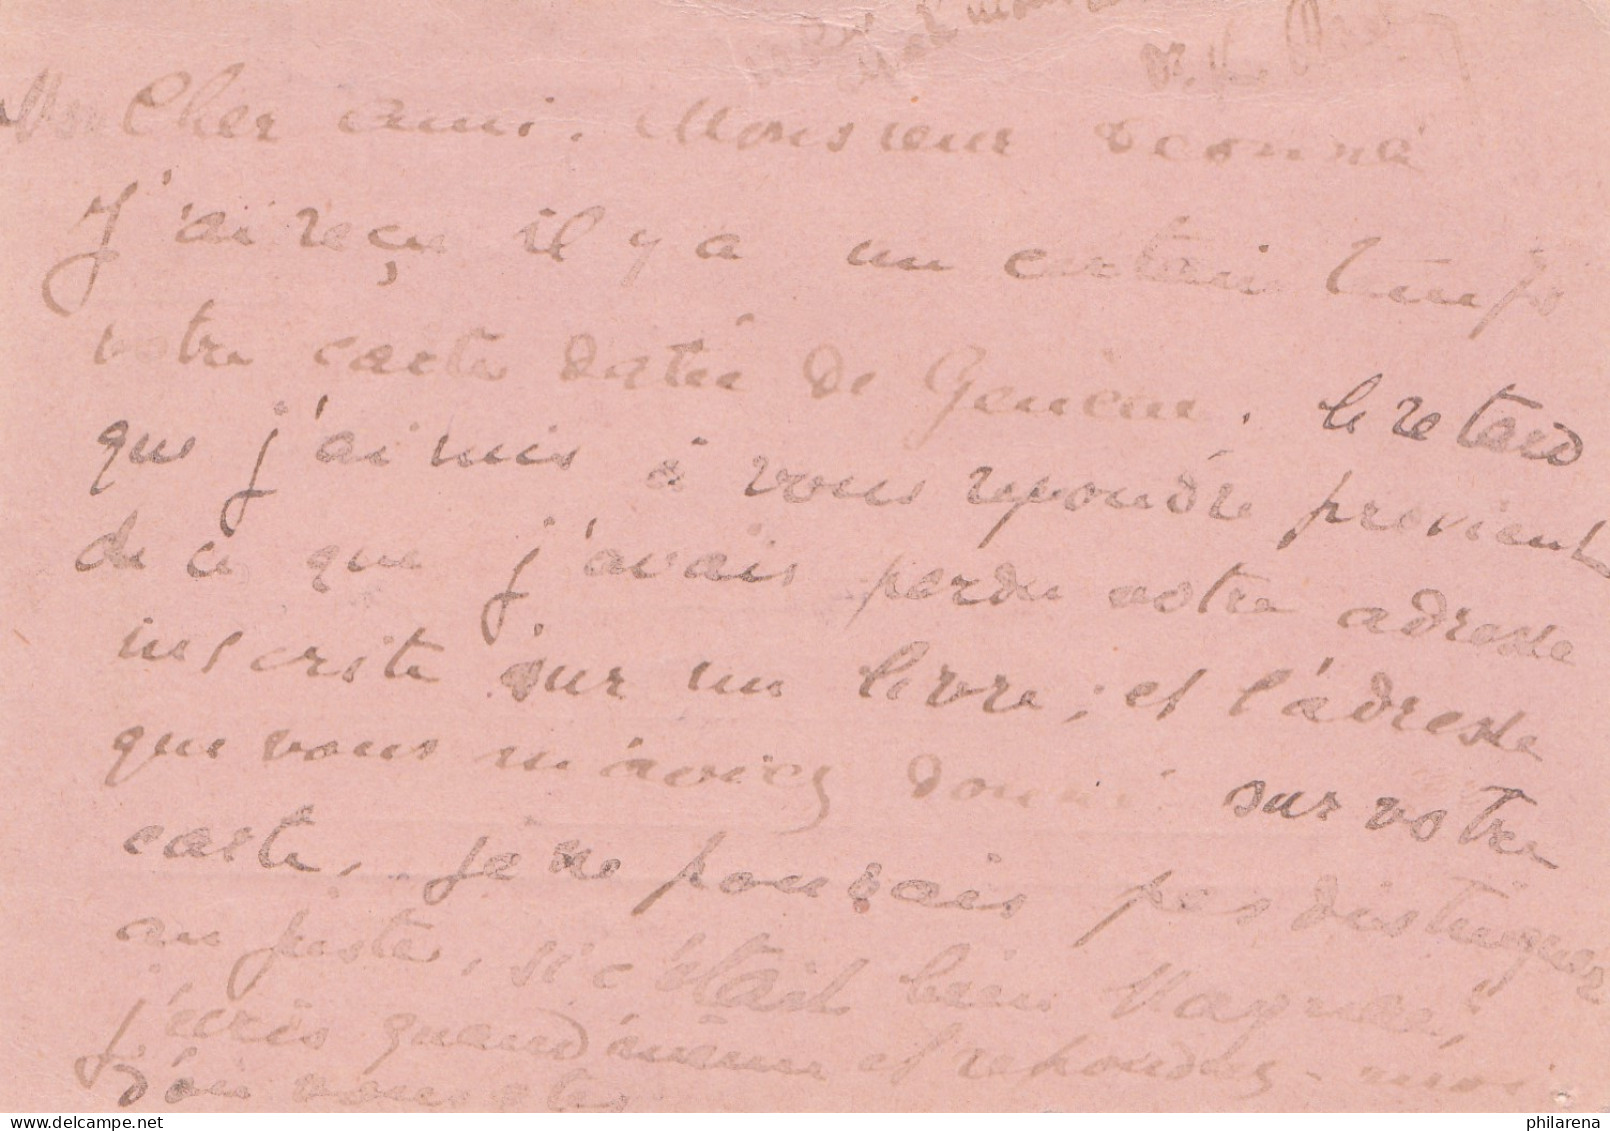 Mon Cher ami. Monsieur Deonna
J'ai reçu il y a un certain temps
votre carte datée de Genève. le retard
que j'ai mis à vous repondre provient
de ce que j'avais perdu votre adresse
inscrite sur un livre; et l'adresse
que vous m'aviez donné sur votre
carte, je ne pouvais pas distinguer
au juste, si c'était bien
j'écris quand même et repondez-moi
d'où vous etes
philarena